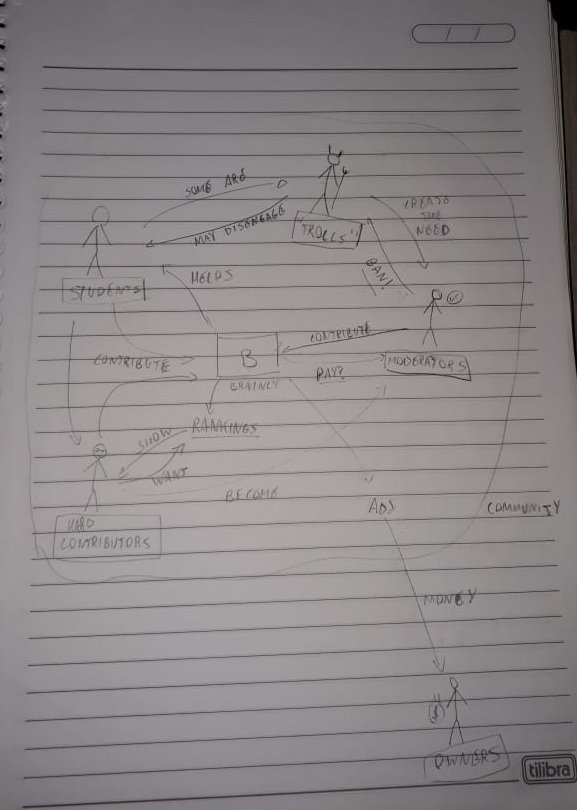 / /
SOME ARE
MAY DISENGAGE
"TROLLS"
CREATE
THE
NEED
BAN!
STUDENTS
HELPS
CONTRIBUTE
B
BRAINLY
CONTRIBUTE
PAY?
MODERATORS
RANKINGS
SHOW
WANT
BECOME
HARD
CONTRIBUTORS
ADS
COMMUNITY
MONEY
$
OWNERS
tilibra